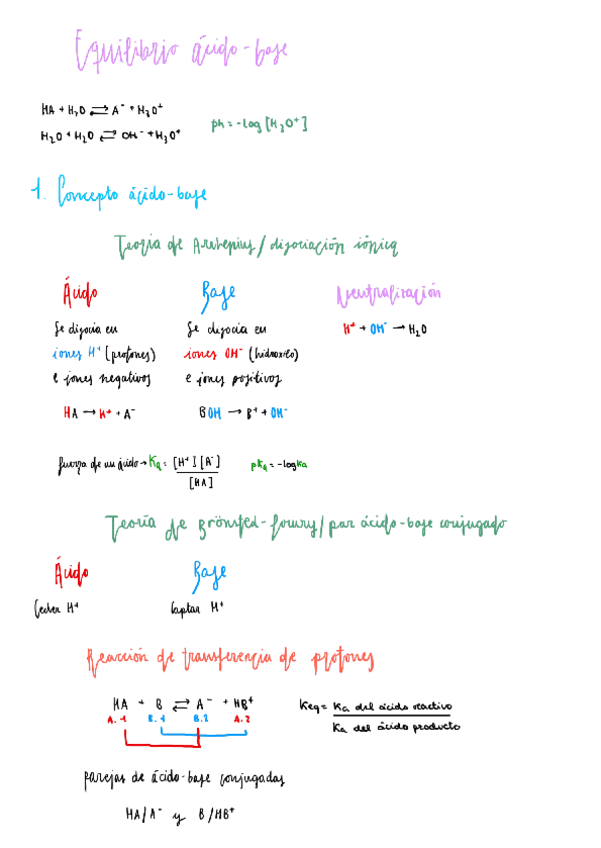 Equilibrio ácido-base
HA + H₂O ⇄ A⁻ + H₃O⁺
ph = -log [H₃O⁺]
H₂O + H₂O ⇄ OH⁻ + H₃O⁺
1. Concepto ácido-base
Teoría de Arrhenius / disociación iónica
Ácido
Se disocia en
iones H⁺ (protones)
e iones negativos
HA → H⁺ + A⁻
Base
Se disocia en
iones OH⁻ (hidroxilo)
e iones positivos
BOH → B⁺ + OH⁻
Neutralización
H⁺ + OH⁻ → H₂O
fuerza de un ácido → Ka = [H⁺][A⁻] / [HA]
pKa = -log Ka
Teoría de Brönsted-Lowry / par ácido-base conjugado
Ácido
Ceder H⁺
Base
Captar H⁺
Reacción de transferencia de protones
HA + B ⇄ A⁻ + HB⁺
A.1 B.1 B.2 A.2
Keq = Ka del ácido reactivo / Ka del ácido producto
parejas de ácido-base conjugadas
HA/A⁻ y B/HB⁺